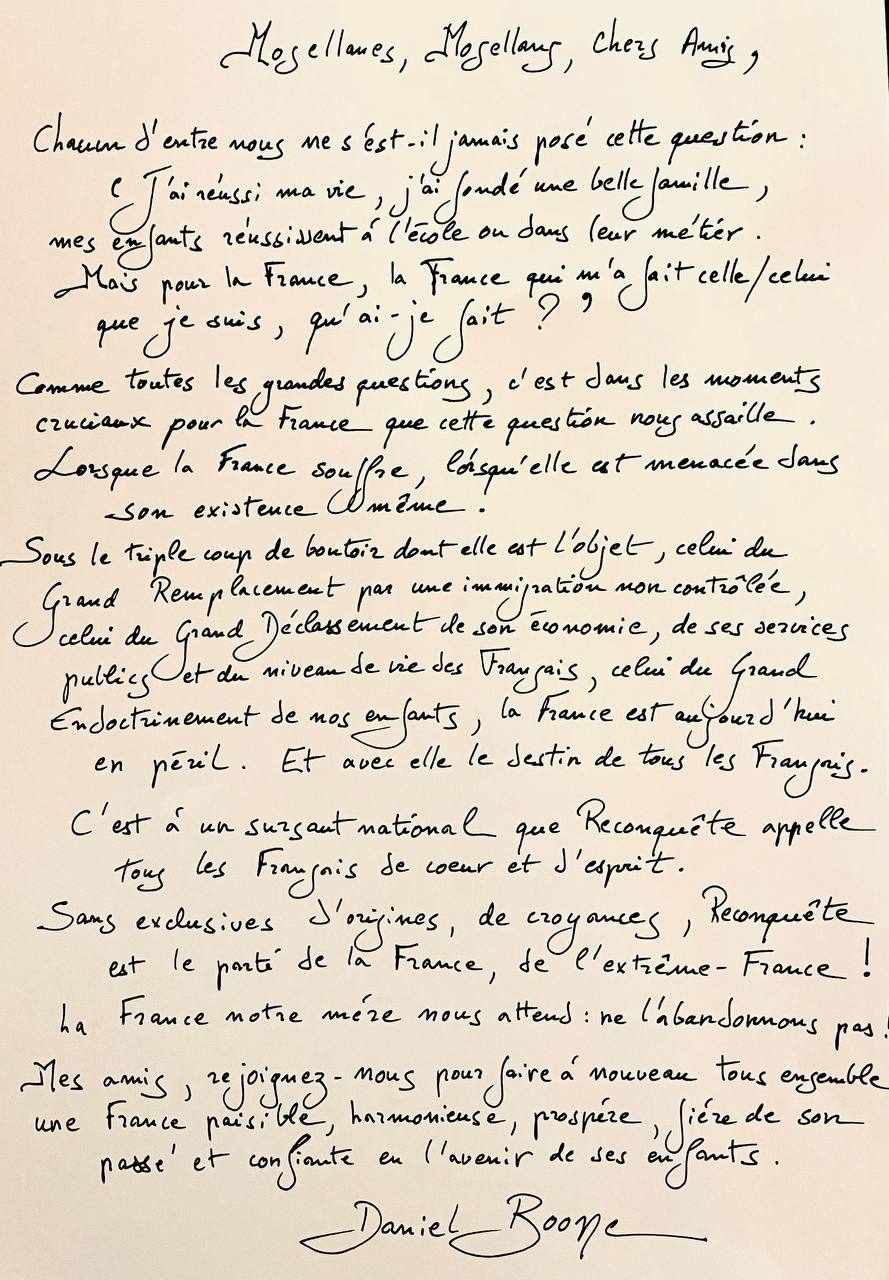 Mosellanes, Mosellans, Chers Amis,
Chacun d'entre nous ne s'est-il jamais posé cette question :
« J'ai réussi ma vie, j'ai fondé une belle famille,
mes enfants réussissent à l'école ou dans leur métier.
Mais pour la France, la France qui m'a fait celle/celui
que je suis, qu'ai-je fait ? »
Comme toutes les grandes questions, c'est dans les moments
cruciaux pour la France que cette question nous assaille.
Lorsque la France souffre, lorsqu'elle est menacée dans
son existence même.
Sous le triple coup de boutoir dont elle est l'objet, celui du
Grand Remplacement par une immigration non contrôlée,
celui du Grand Déclassement de son économie, de ses services
publics et du niveau de vie des Français, celui du Grand
Endoctrinement de nos enfants, la France est aujourd'hui
en péril. Et avec elle le destin de tous les Français.
C'est à un sursaut national que Reconquête appelle
tous les Français de coeur et d'esprit.
Sans exclusives d'origines, de croyances, Reconquête
est le parti de la France, de l'extrême-France !
La France notre mère nous attend : ne l'abandonnons pas !
Mes amis, rejoignez-nous pour faire à nouveau tous ensemble
une France paisible, harmonieuse, prospère, fière de son
passé et confiante en l'avenir de ses enfants.
Daniel Boone